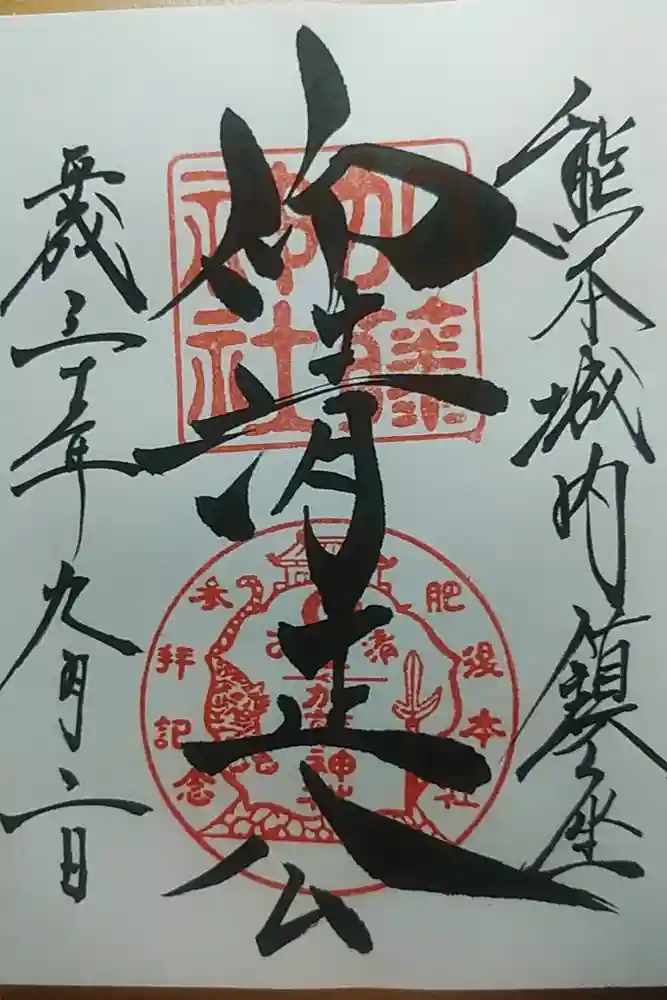 熊本城内鎮座
仰清正公
平成三十年九月二日
加藤
神社
肥後本社
拝記念
加藤神社